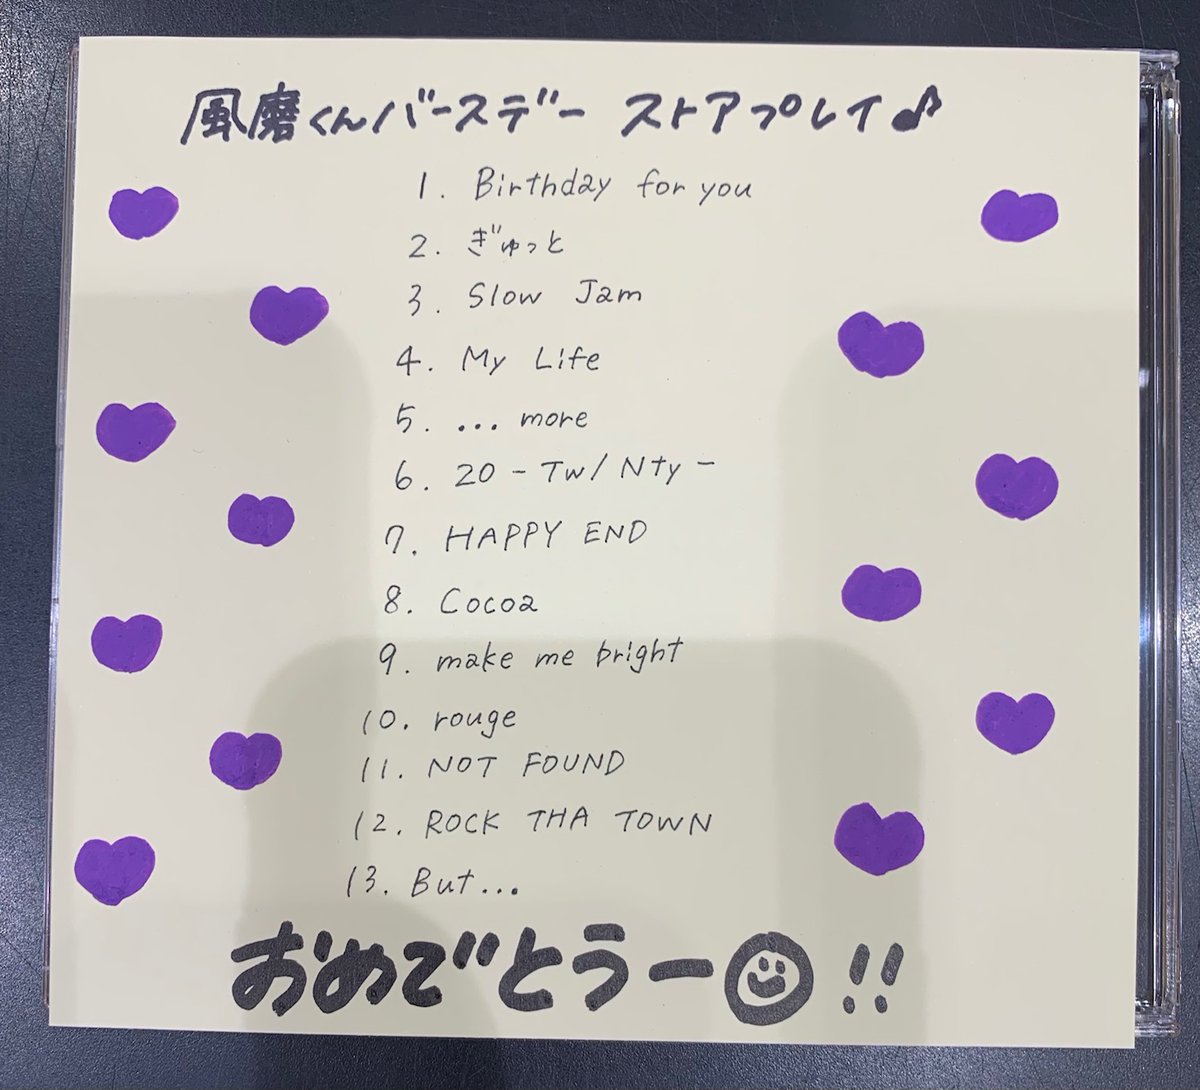 風磨くんバースデー ストアプレイ♪
1. Birthday for you
2. ぎゅっと
3. Slow Jam
4. My Life
5. ... more
6. 20 - Tw/Nty -
7. HAPPY END
8. Cocoa
9. make me bright
10. rouge
11. NOT FOUND
12. ROCK THA TOWN
13. But...
おめでとうー☺!!